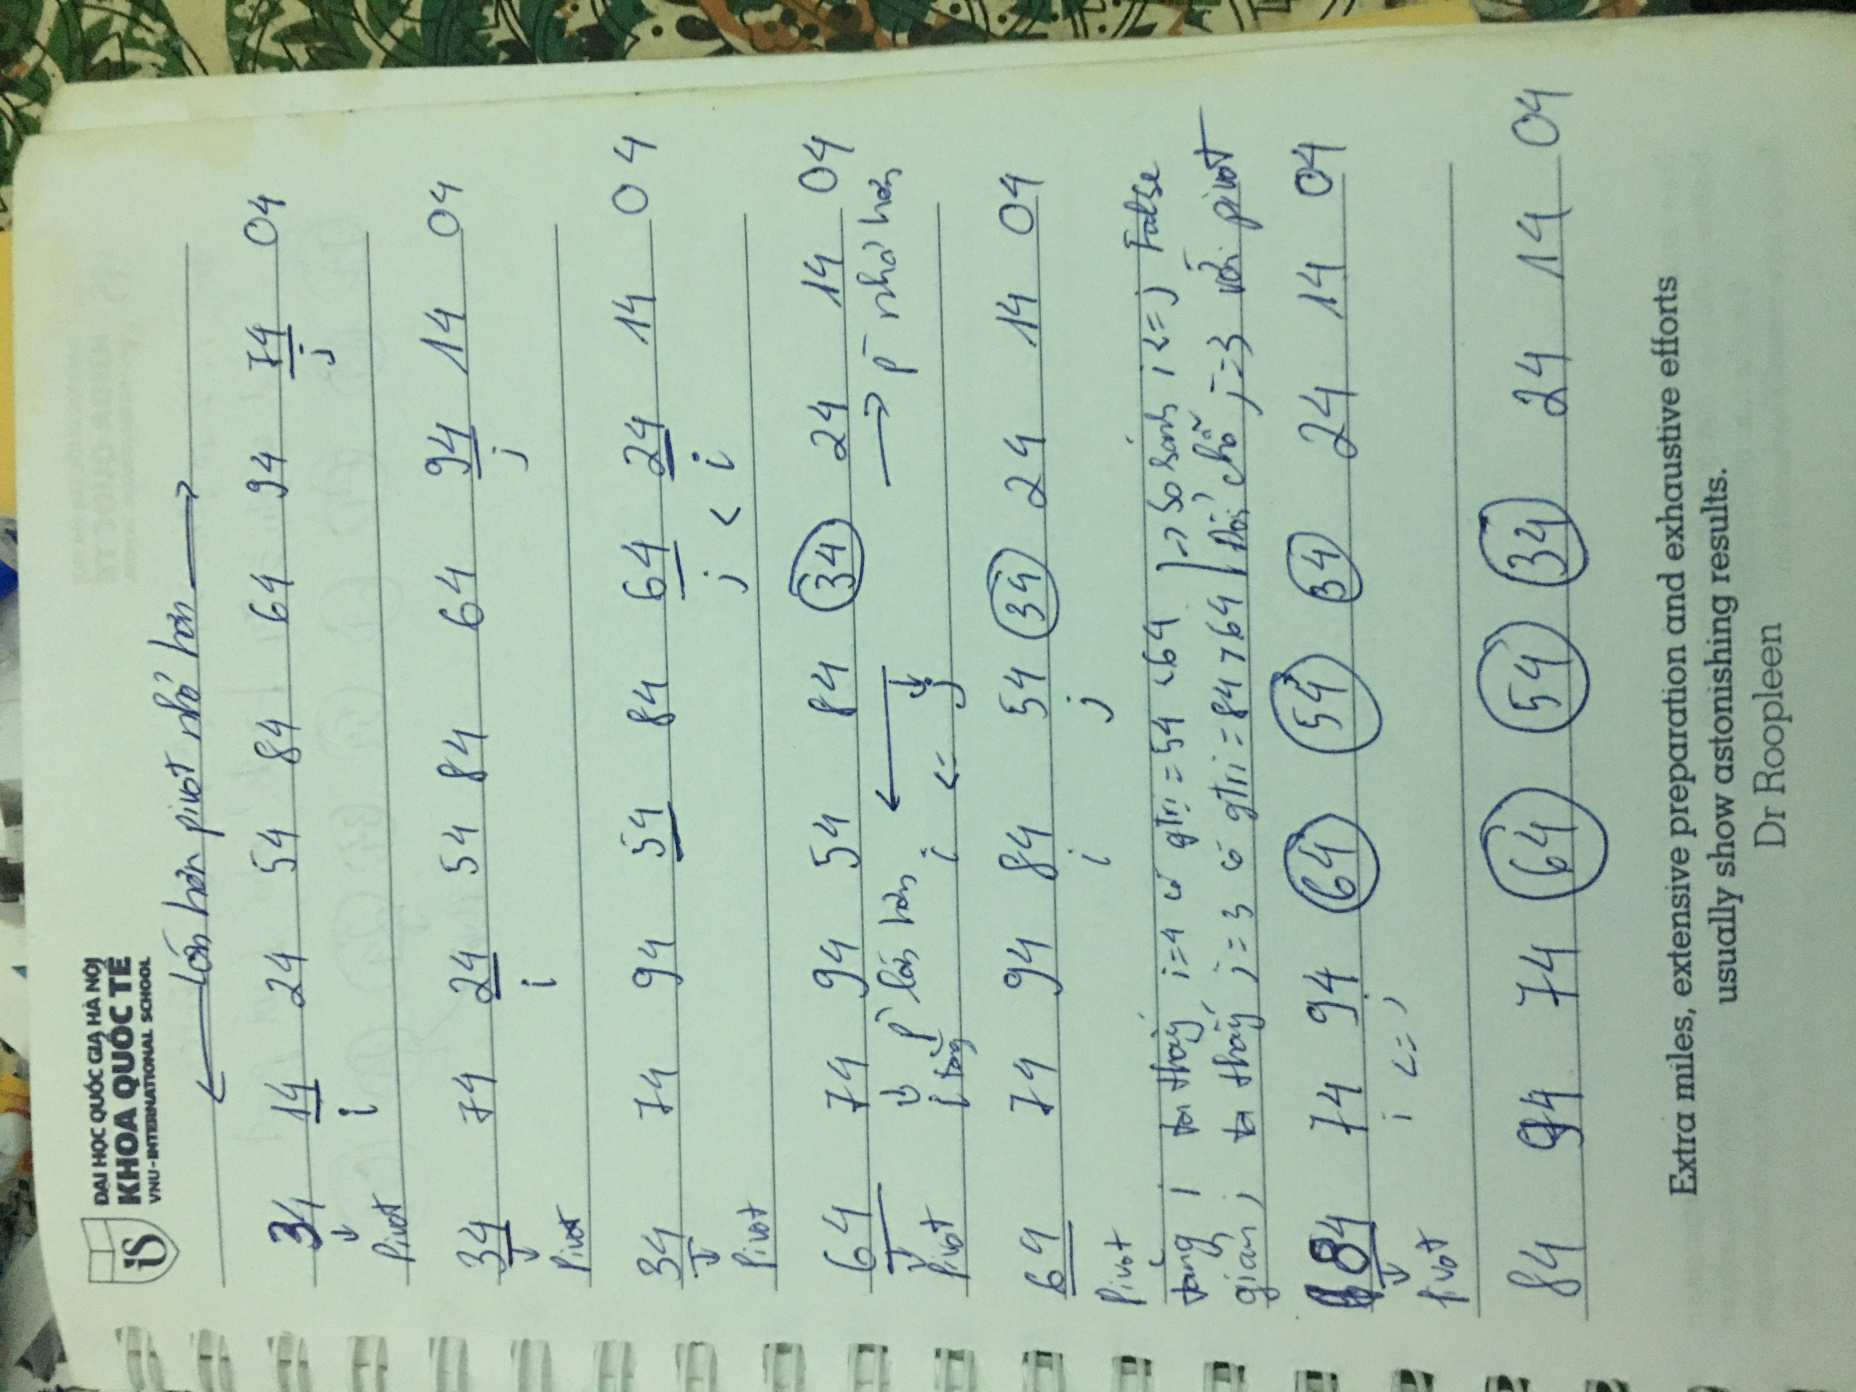 ĐẠI HỌC QUỐC GIA HÀ NỘI
KHOA QUỐC TẾ
VNU-INTERNATIONAL SCHOOL
iS
← lớn hơn pivot nhỏ hơn →
34 14 24 54 84 64 94 74 04
↓ i j
Pivot
34 74 24 54 84 64 94 14 04
↓ i j
Pivot
34 74 94 54 84 64 24 14 04
↓ j < i
Pivot
64 74 94 54 84 34 24 14 04
↓ p lớn hơn ← → p nhỏ hơn
Pivot i tăng i <= j
64 74 94 84 54 34 24 14 04
Pivot i j
tăng i ta thấy i=4 có gtri=54 <64 → so sánh i<=j False
giảm j ta thấy j=3 có gtri=84>64 đổi chỗ j=3 với pivot
84 74 94 64 54 34 24 14 04
↓ i <= j
Pivot
84 94 74 64 54 34 24 14 04
Extra miles, extensive preparation and exhaustive efforts
usually show astonishing results.
Dr Roopleen